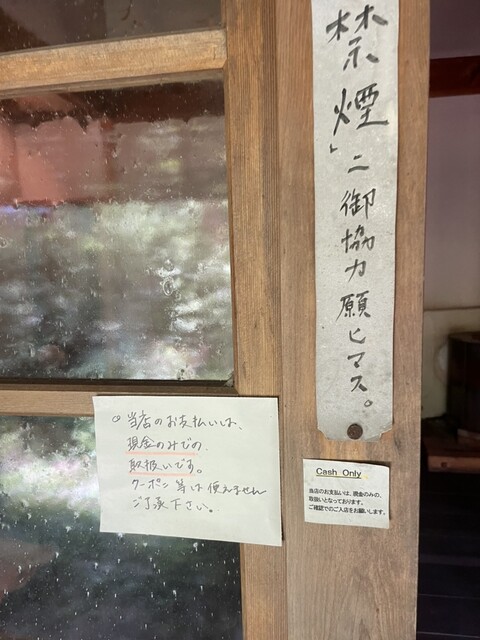 禁煙」ニ御協力願ヒマス。
○当店のお支払いは、
現金のみでの
取扱いです。
クーポン等は使えません
ご了承下さい。
Cash Only
当店のお支払いは、現金のみの、
取扱いとなっております。
ご確認でのご入店をお願いします。